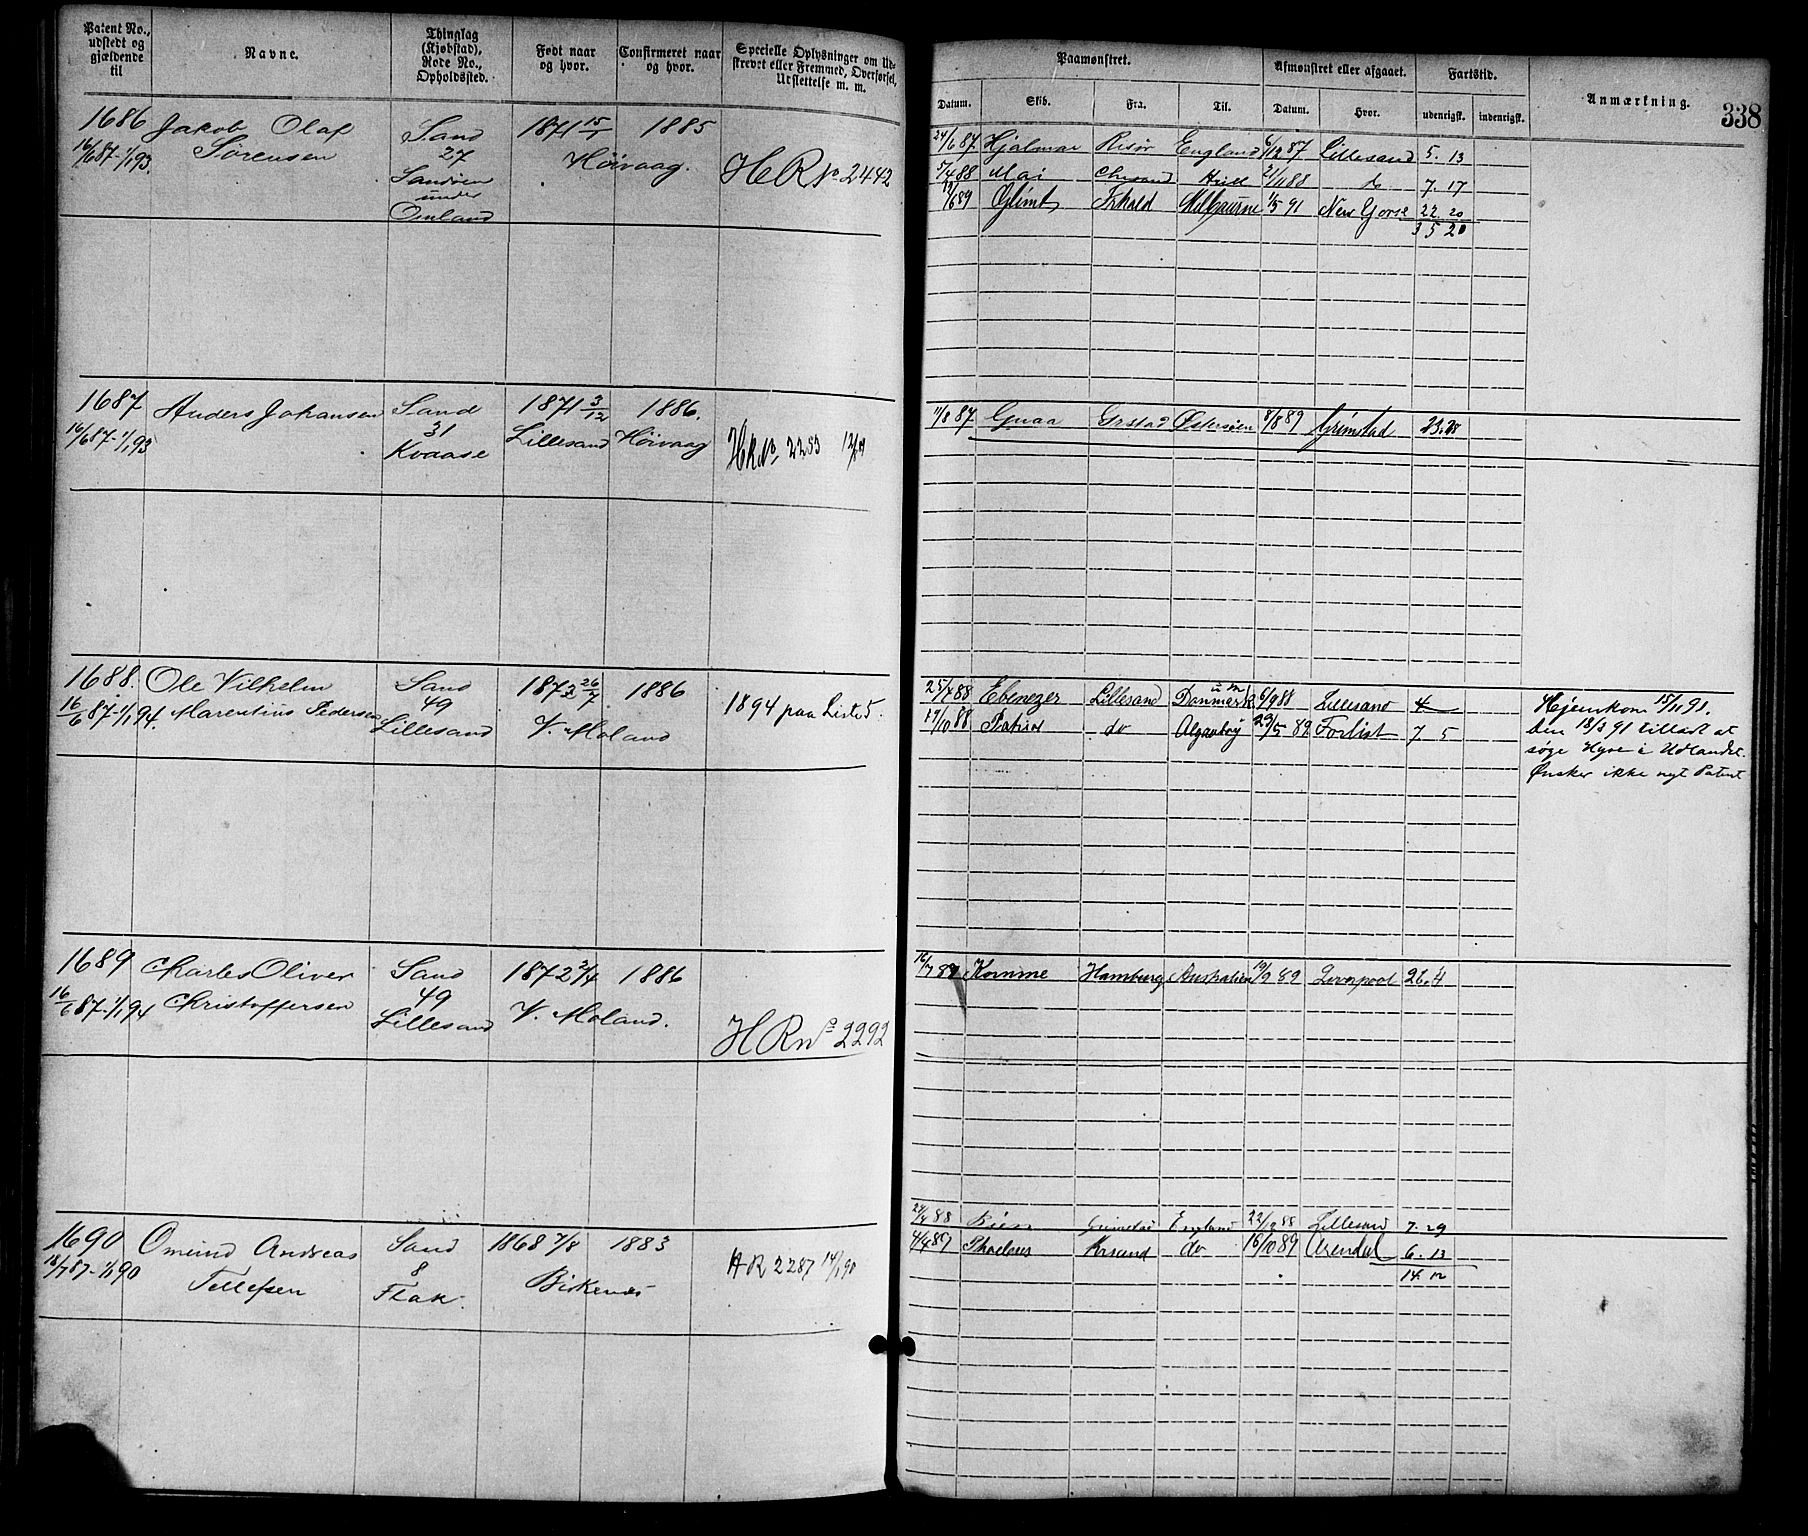 Patent No., udstedt og gjældende til
Navne.
Thinglag (Kjøbstad), Rode No., Opholdssted.
Født naar og hvor.
Confirmeret naar og hvor.
Specielle Oplysninger om Udskrevet eller Fremmed, Overførsel, Udslettelse m. m.
Paamønstret.
Afmønstret eller afgaaet.
Fartstid.
Anmærkning.
338
Datum.
Skib.
Fra.
Til.
Datum.
Hvor.
udenrigsk.
indenrigsk.
1686 Jakob Olaf Sand 1871 15/1 1885
16/6 87-1/1 93 Sørensen 27 Høivaag. HRNo 2442
Sandøen
under
Omland
24/6 87 Hjalmar Risør England 6/12 87 Lillesand 5. 13
5/4 88 Mai Chrsand Hull 21/11 88 do 7. 17
/6 89 Glimt Frhald Melbourne 1/5 91 New Yorse 22 20
35 20
1687 Anders Johansen Sand 1871 3/12 1886.
16/6 87-1/1 93 31 Lillesand Høivaag HRNo 2253
Kvaase
11/8 87 Gnaa Grstad Østersøen 8/8 89 Grimstad 23. 28
1688. Ole Vilhelm Sand 1872 26/7 1886
16/6 87-1/1 94. Marentius Pedersen 49 V. Moland 1894 paa Liste 5.
Lillesand
25/7 88 Ebenezer Lillesand Danmark 6/9 88 Lillesand
19/10 88 do 23/5 89 Forlist 7 5
Hjemkom 15/11 91.
Den 18/3 91 tilladt at
søge Hyre i Udlandet.
Ønsker ikke nyt Patent
1689 Charles Oliver Sand 1872 3/4 1886
16/6 87-1/1 94 Christoffersen 49 V. Moland.
Lillesand HRNo 2292
16/7 87 Komme Hamburg Australien 19/9 89 Liverpool 26. 4
1690 Omund Andreas Sand 1868 7/8 1883
18/7 87-1/1 90 Tellefsen 8 Birkenæs HR 2287 14/1 90
Flak.
24/4 88 Grimstad England 22/12 88 Lillesand 7. 29
4/4 89 Krsund do 16/10 89 Arendal 6. 13
14. 12